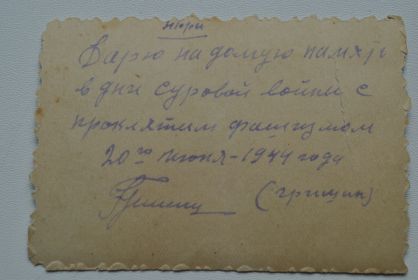 Нюри
Дарю на долгую память
в дни суровой войны с
проклятим фашизмом
20го июня - 1944 года
(Грицин)